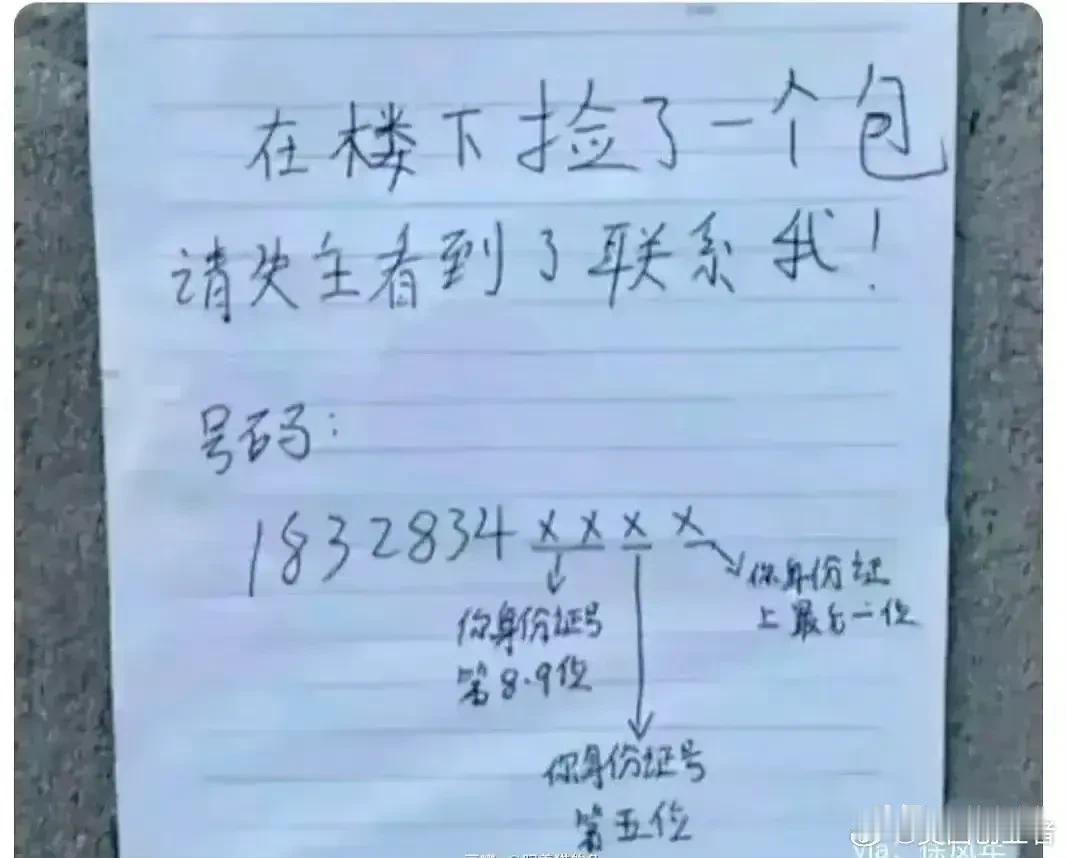 在楼下捡了一个包
请失主看到了联系我！
号码：
1832834××××
你身份证
上最后一位
你身份证号
第8.9位
你身份证号
第五位
via: